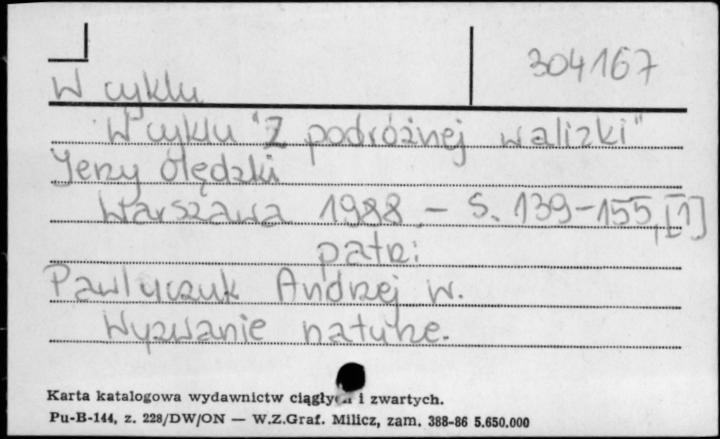 304167
W cyklu
W cyklu "Z podróżnej walizki"
Jerzy Olędzki
Warszawa 1988. - S. 139-155, [1]
patrz:
Pawluczuk Andrzej W.
Wyzwanie naturze.
Karta katalogowa wydawnictw ciągłych i zwartych.
Pu-B-144, z. 228/DW/ON — W.Z.Graf. Milicz, zam. 388-86 5.650.000